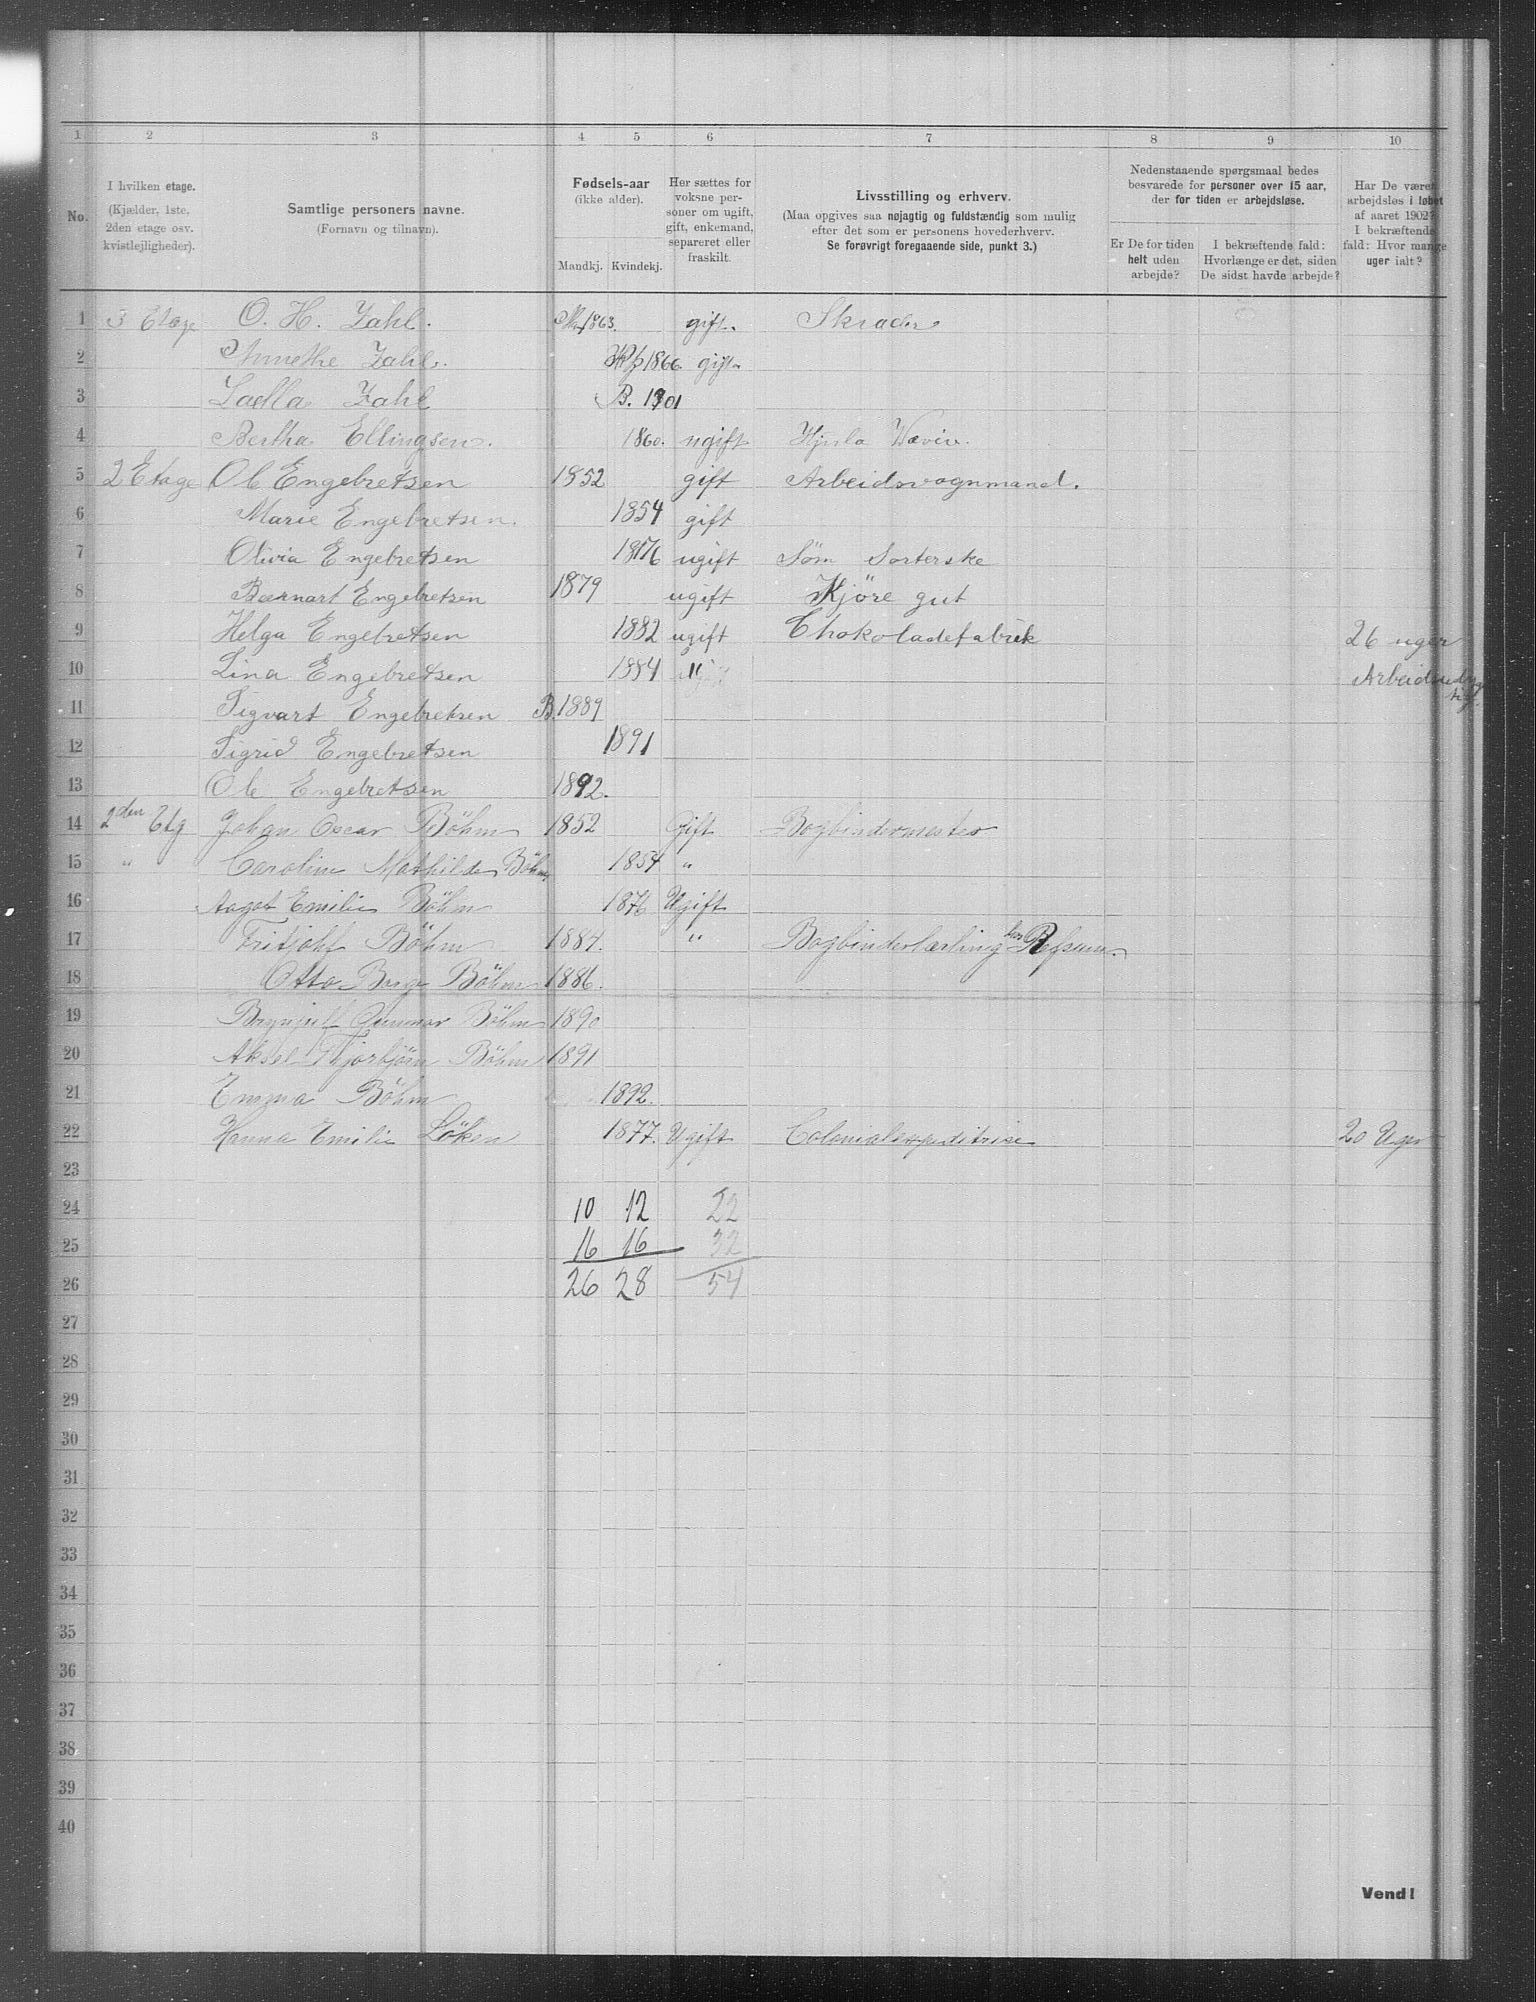 1 2 3 4 5 6 7 8 9 10
No.
I hvilken etage.
(Kjælder, 1ste,
2den etage osv.
kvistlejligheder).
Samtlige personers navne.
(Fornavn og tilnavn).
Fødsels-aar
(ikke alder).
Mandkj. Kvindekj.
Her sættes for
voksne per-
soner om ugift,
gift, enkemand,
separeret eller
fraskilt.
Livsstilling og erhverv.
(Maa opgives saa nøjagtig og fuldstændig som mulig
efter det som er personens hovederhverv.
Se forøvrigt foregaaende side, punkt 3.)
Nedenstaaende spørgsmaal bedes
besvarede for personer over 15 aar,
der for tiden er arbejdsløse.
Er De for tiden
helt uden
arbejde?
I bekræftende fald:
Hvorlænge er det, siden
De sidst havde arbejde?
Har De været
arbejdsløs i løbet
af aaret 1902?
I bekræftende
fald: Hvor mange
uger ialt?
1 3 Etage O. H. Zahl. 1863. gift. Skrader
2 Annethe Zahl. 1866. gift
3 Zahl B. 1901
4 Bertha Ellingsen. 1860. ugift Hjula Væveri.
5 2 Etage Ole Engebretsen 1852 gift Arbeidsvognmand.
6 Marie Engebretsen. 1854 gift
7 Olivia Engebretsen 1876 ugift Søm Sorterske
8 Bernart Engebretsen 1879 ugift Kjöre gut
9 Helga Engebretsen 1882 ugift Chokoladefabrik 26 uger
10 Lina Engebretsen 1884 "
11 Sigvart Engebretsen B. 1889
12 Sigrid Engebretsen 1891
13 Ole Engebretsen 1892.
14 2den Etg Johan Oscar Böhm 1852 Gift Bogbindermester
15 " Caroline Mathilde Böhm 1854 "
16 Aagot Emilie Böhm 1876 Ugift
17 Fritjohf Böhm 1884. " Bogbinderlærling hos Refsum.
18 Otto Böhm 1886.
19 Gunnar Böhm 1890
20 Aksel Thjorbjörn Böhm 1891
21 Emma Böhm 1892.
22 Hanna Emilie Löken 1877. Ugift Colonialexpeditrise 20 Uger
23
24 10 12 22
25 16 16 32
26 26 28 54
27
28
29
30
31
32
33
34
35
36
37
38
39
40
Vend!